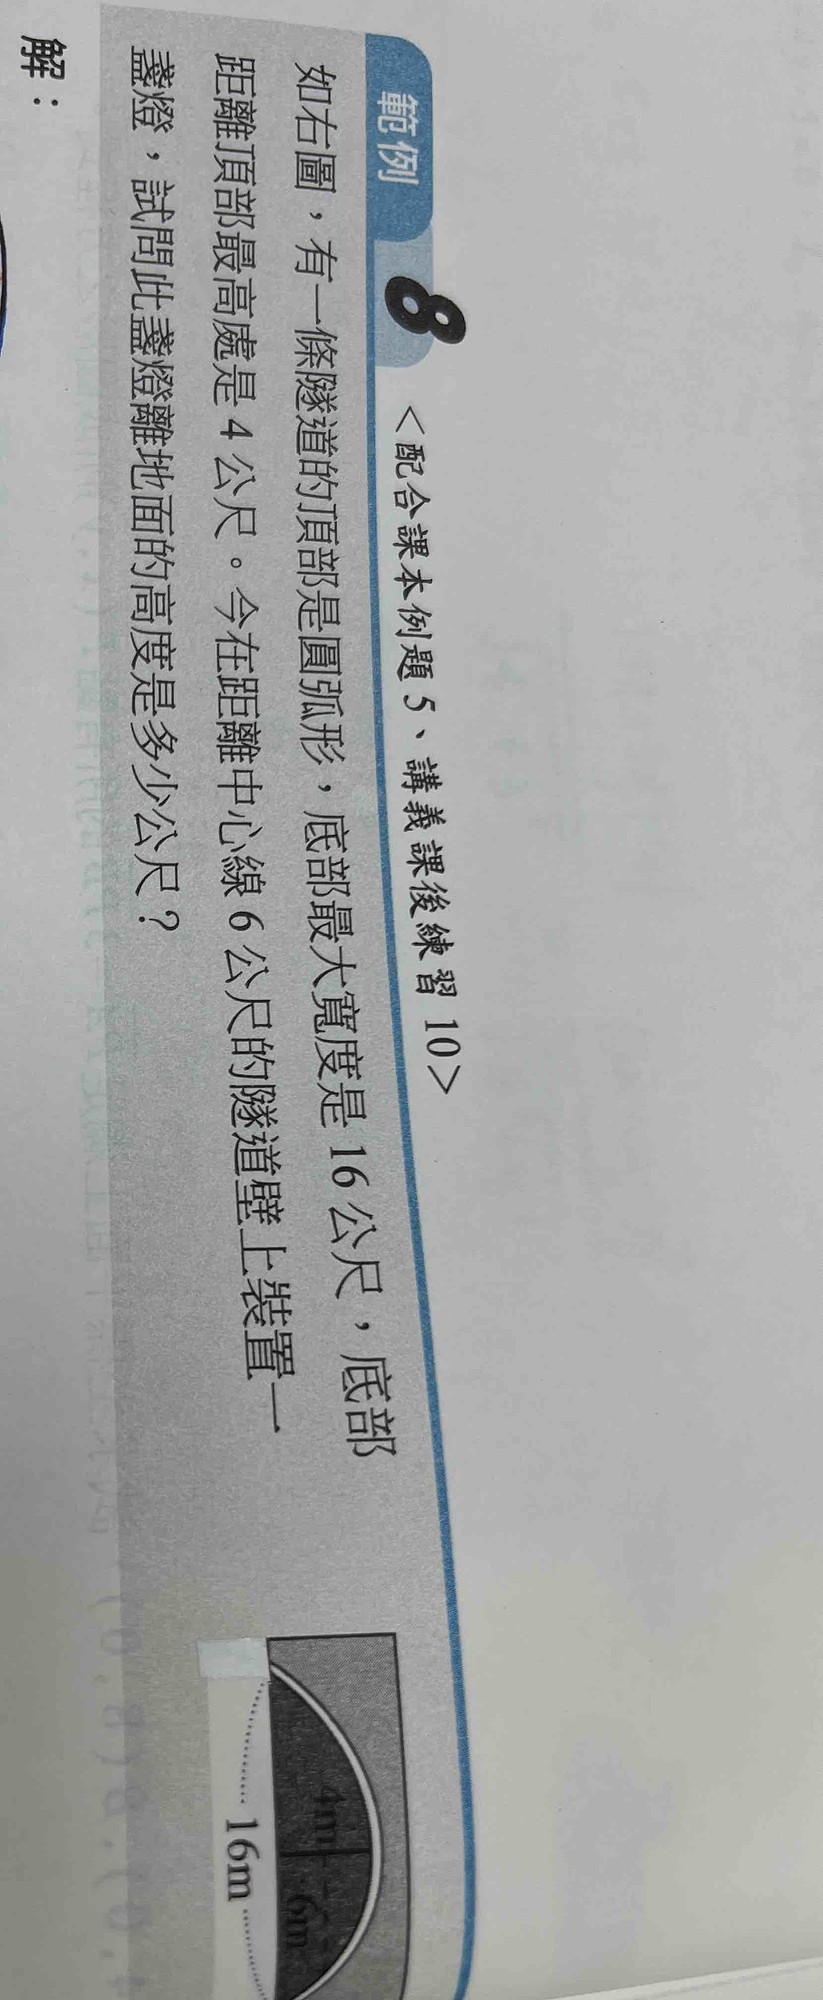 範例 8 <配合課本例題 5、講義課後練習 10>
如右圖，有一條隧道的頂部是圓弧形，底部最大寬度是 16 公尺，底部
距離頂部最高處是 4 公尺。今在距離中心線 6 公尺的隧道壁上裝置一
盞燈，試問此盞燈離地面的高度是多少公尺？
4m
6m
16m
解：